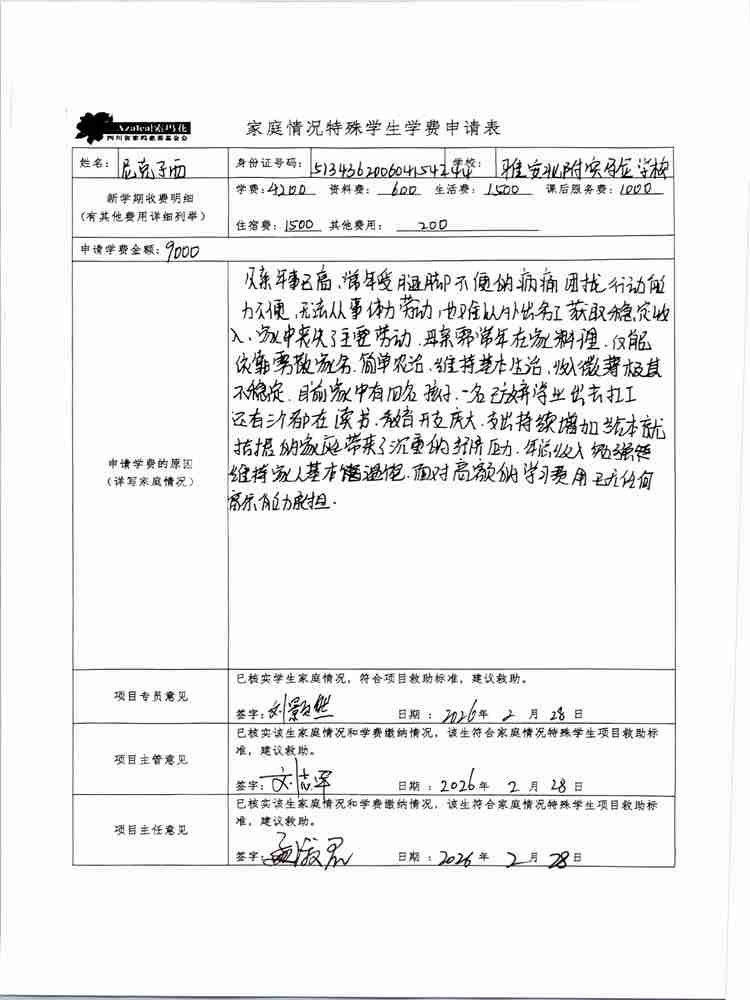 Azalea|索玛花
四川省索玛慈善基金会
家庭情况特殊学生学费申请表
姓名: 尼克子西 身份证号码: 513436200604154244 学校: 雅安北附实验学校
新学期收费明细
(有其他费用详细列举)
学费: 4200 资料费: 600 生活费: 1500 课后服务费: 1000
住宿费: 1500 其他费用: 200
申请学费金额: 9000
申请学费的原因
(详写家庭情况)
父亲年事已高、常年受腿脚不便的病痛困扰行动能
力不便,无法从事体力劳动,也难以外出务工获取稳定收
入、家中丧失了主要劳动、母亲需常年在家料理、仅能
依靠 家务、简单农活、维持基本生活,收入微薄极其
不稳定、目前家中有四名孩子、一名已放弃学业出去打工
还有三个都在读书、教育开支庞大、支出持续增加给本就
拮据的家庭带来了沉重的经济压力、年总收入 勉强
维持家人基本 温饱、面对高额的学习费用已无任何
能力承担.
项目专员意见
已核实学生家庭情况,符合项目救助标准,建议救助。
签字: 刘 日期: 2026年 2 月 28 日
项目主管意见
已核实该生家庭情况和学费缴纳情况,该生符合家庭情况特殊学生项目救助标
准,建议救助。
签字: 刘志军 日期: 2026年 2 月 28 日
项目主任意见
已核实该生家庭情况和学费缴纳情况,该生符合家庭情况特殊学生项目救助标
准,建议救助。
签字: 日期: 2026年 2 月 28 日